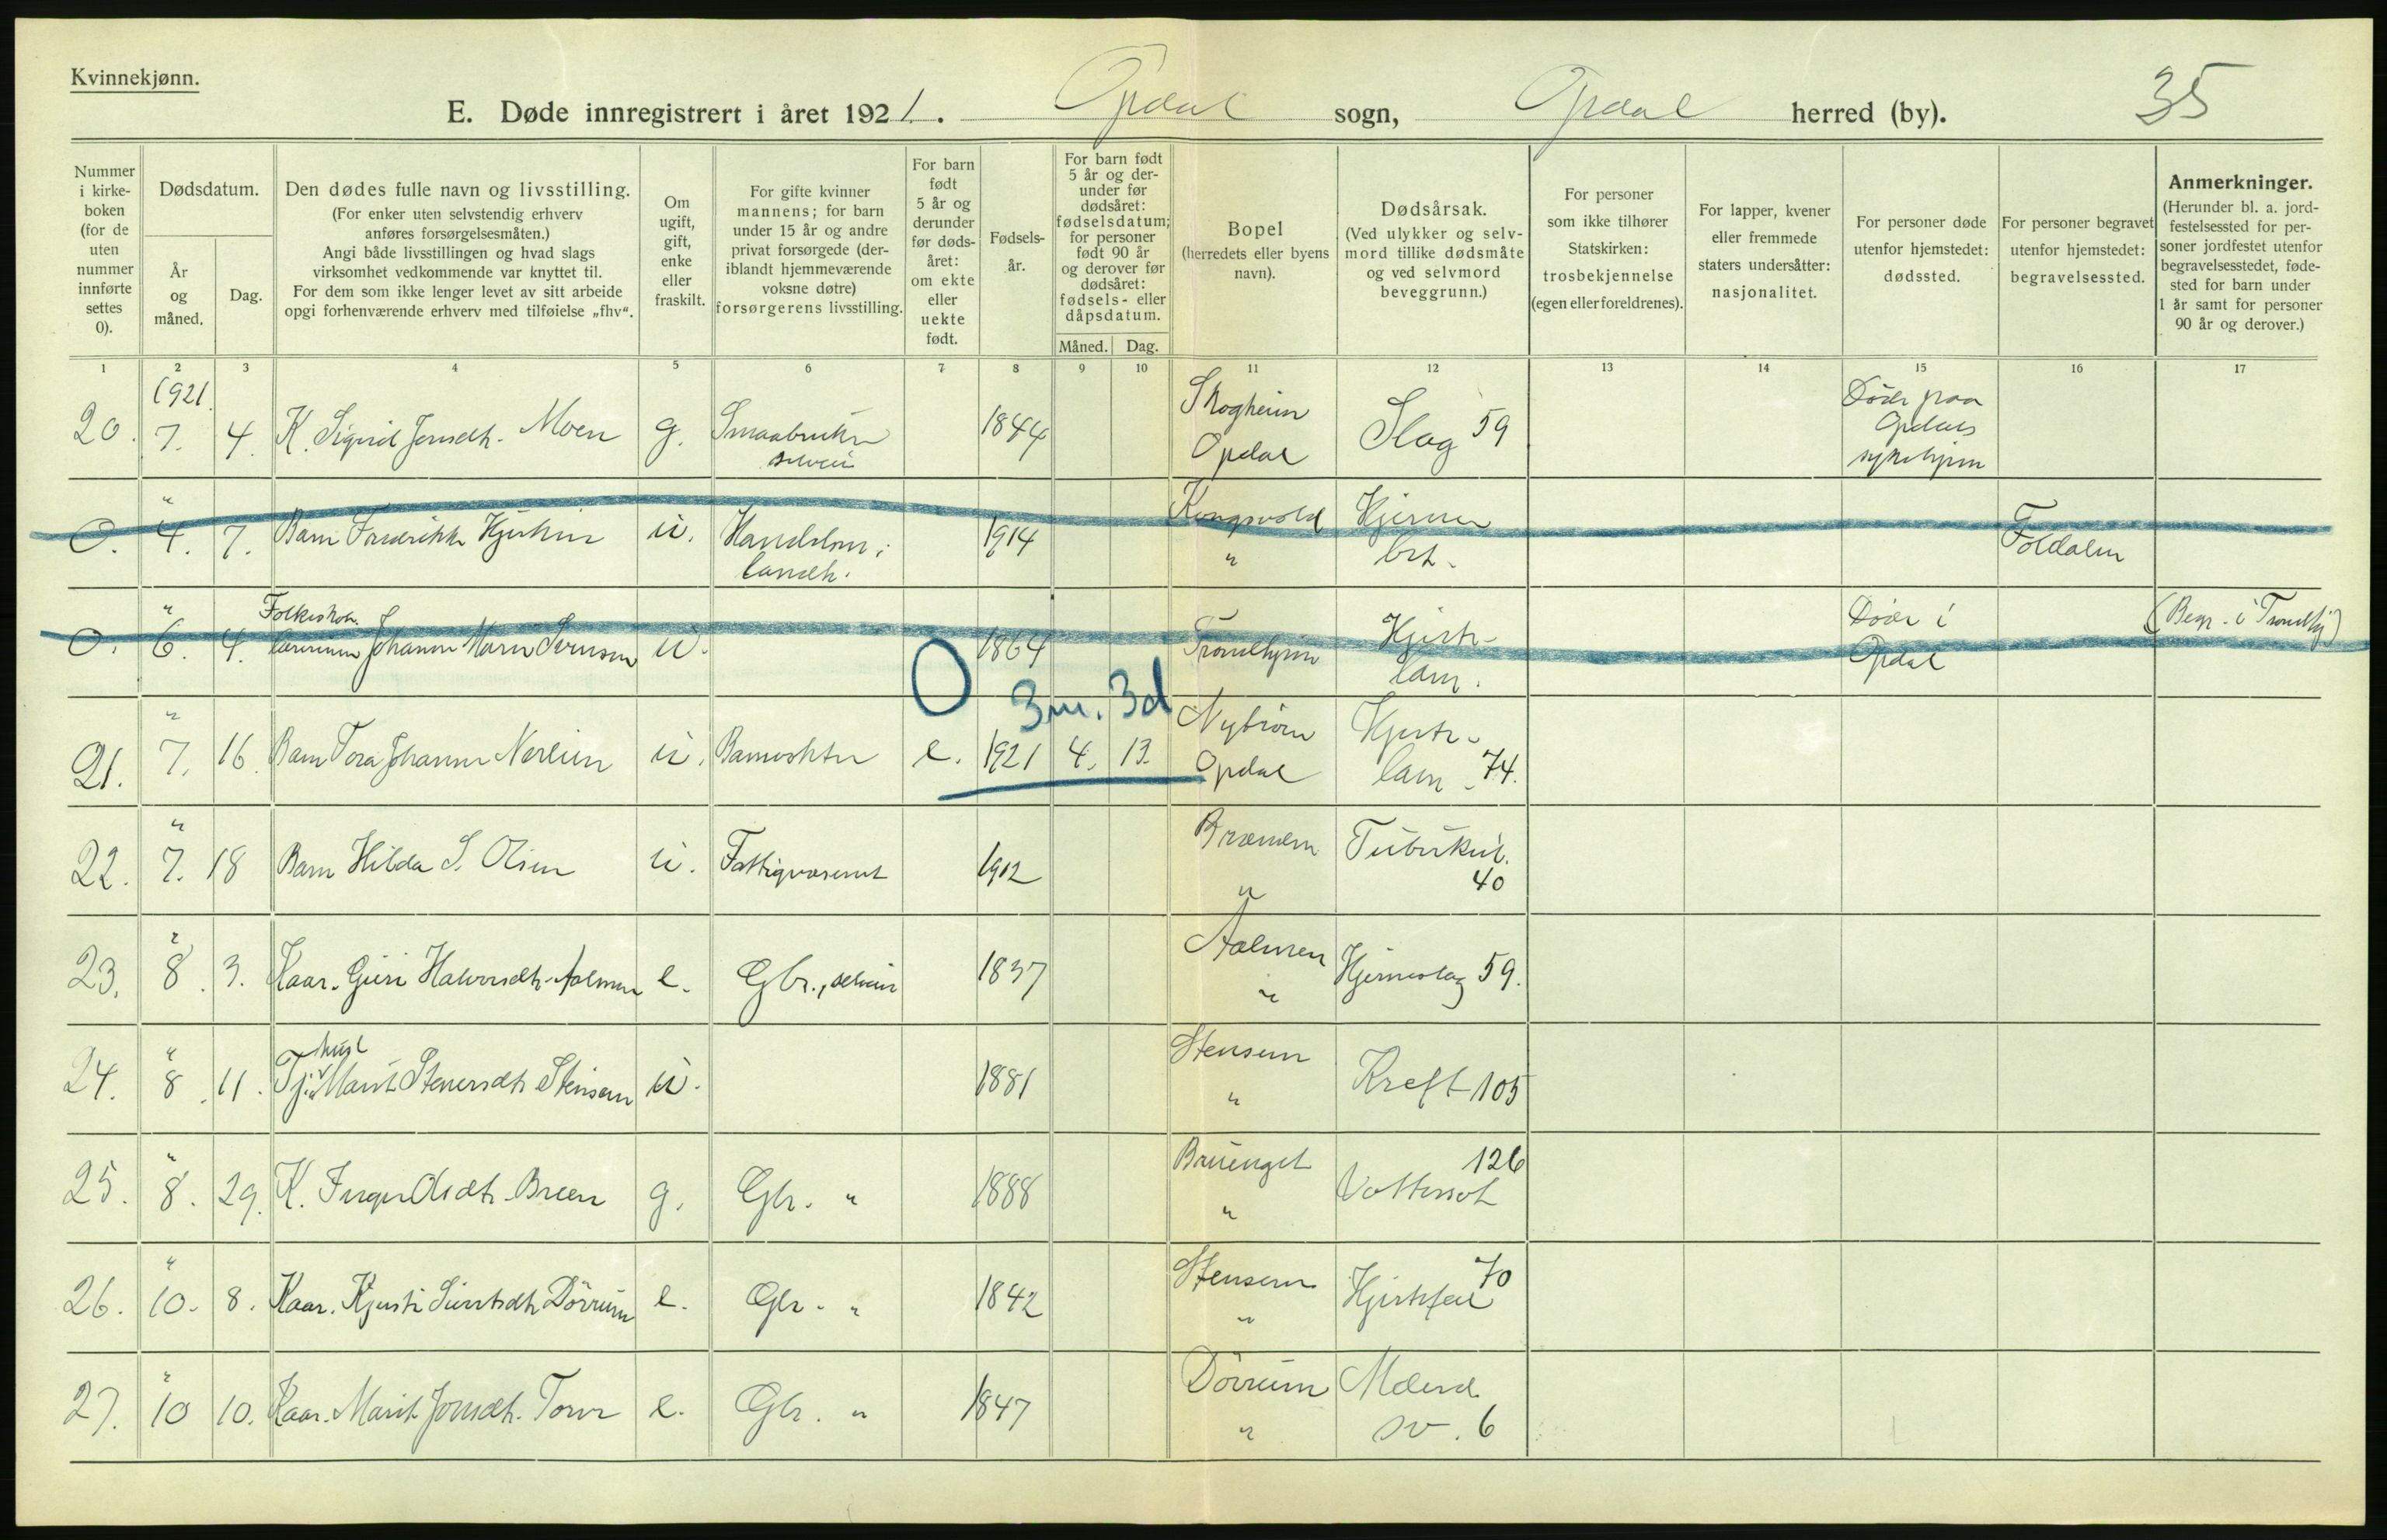 Kvinnekjønn.
E. Døde innregistrert i året 1921. Opdal sogn, Opdal herred (by). 35
Nummer i kirke-boken (for de uten nummer innførte settes 0).
Dødsdatum.
År og måned.
Dag.
Den dødes fulle navn og livsstilling.
(For enker uten selvstendig erhverv
anføres forsørgelsesmåten.)
Angi både livsstillingen og hvad slags
virksomhet vedkommende var knyttet til.
For dem som ikke lenger levet av sitt arbeide
opgi forhenværende erhverv med tilføielse „fhv“.
Om ugift, gift, enke eller fraskilt.
For gifte kvinner
mannens; for barn
under 15 år og andre
privat forsørgede (der-
iblandt hjemmeværende
voksne døtre)
forsørgerens livsstilling.
For barn født 5 år og derunder før døds-året: om ekte eller uekte født.
Fødsels-år.
For barn født
5 år og der-
under før
dødsåret:
fødselsdatum;
for personer
født 90 år
og derover før
dødsåret:
fødsels- eller
dåpsdatum.
Måned. Dag.
Bopel
(herredets eller byens
navn).
Dødsårsak.
(Ved ulykker og selv-
mord tillike dødsmåte
og ved selvmord
beveggrunn.)
For personer
som ikke tilhører
Statskirken:
trosbekjennelse
(egen eller foreldrenes).
For lapper, kvener
eller fremmede
staters undersåtter:
nasjonalitet.
For personer døde
utenfor hjemstedet:
dødssted.
For personer begravet
utenfor hjemstedet:
begravelsessted.
Anmerkninger.
(Herunder bl. a. jord-
festelsessted for per-
soner jordfestet utenfor
begravelsesstedet, føde-
sted for barn under
1 år samt for personer
90 år og derover.)
1 2 3 4 5 6 7 8 9 10 11 12 13 14 15 16 17
1921
20. 7. 4. K. Sigrid Jonsdtr. Moen g. Smaabruker selveier 1844 Skogheim Opdal Slag 59 Död paa Opdals sykehjem
0. " 4. 7. Barn Fredrikke Hjerkin u. 1914 Kongsvold " Hjerne bet. Foldalen
0. " 6. 4. Folkeskole lærerinne Johanne Marie u. 1864 Trondhjem Hjerte lam. Död i Opdal (Begr. i Trondhj)
O 3m. 3d
21. " 7. 16. Barn Tora Johanne u. e. 1921 4. 13. Opdal Hjerte lam. 74.
22. " 7. 18 Barn Hilda S. Olsen u. Fattigvæsenet 1912 " Tuberkul. 40
23. " 8. 3. Kaar. Guri Halvorsdtr. Aalmen e. Gbr., selveier 1837 Aalmen " Hjerneslag 59.
24. " 8. 11. Marit Steinersdtr. Stensem u. 1881 Stensem " Kreft 105
25. " 8. 29. K. Inger Olsdtr. Breen g. Gbr. " 1888 " Vattersot 126
26. " 10. 8. Kaar. Kjersti Sivertsdtr. Dörrum e. Gbr. " 1842 Stensem " Hjertefeil 70
27. " 10 10. Kaar. Marit Jonsdtr. Torve e. Gbr. " 1847 Dörrum " Alderd. sv. 6